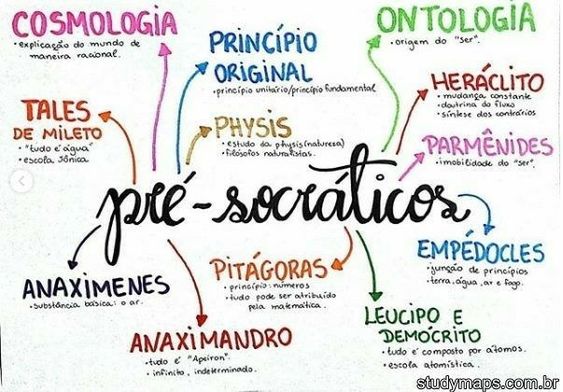 COSMOLOGIA
• explicação do mundo de
maneira racional.
PRINCÍPIO
ORIGINAL
• princípio unitário/princípio fundamental
ONTOLOGIA
• origem do "ser".
TALES
DE MILETO
• "tudo é água"
• escola Jônica
PHYSIS
• estudo da physis (natureza)
• filósofos naturalistas.
HERÁCLITO
• mudança constante
• doutrina do fluxo
• síntese dos contrários
PARMÊNIDES
• imobilidade do "ser".
pré-socráticos
ANAXIMENES
• substância básica: o ar.
PITÁGORAS
• princípio: números
• tudo pode ser atribuído
pela matemática.
EMPÉDOCLES
• junção de princípios
• terra, água, ar e fogo.
ANAXIMANDRO
• tudo é "Apeiron".
• infinito, indeterminado.
LEUCIPO E
DEMÓCRITO
• tudo é composto por átomos.
• escola atomística.
studymaps.com.br